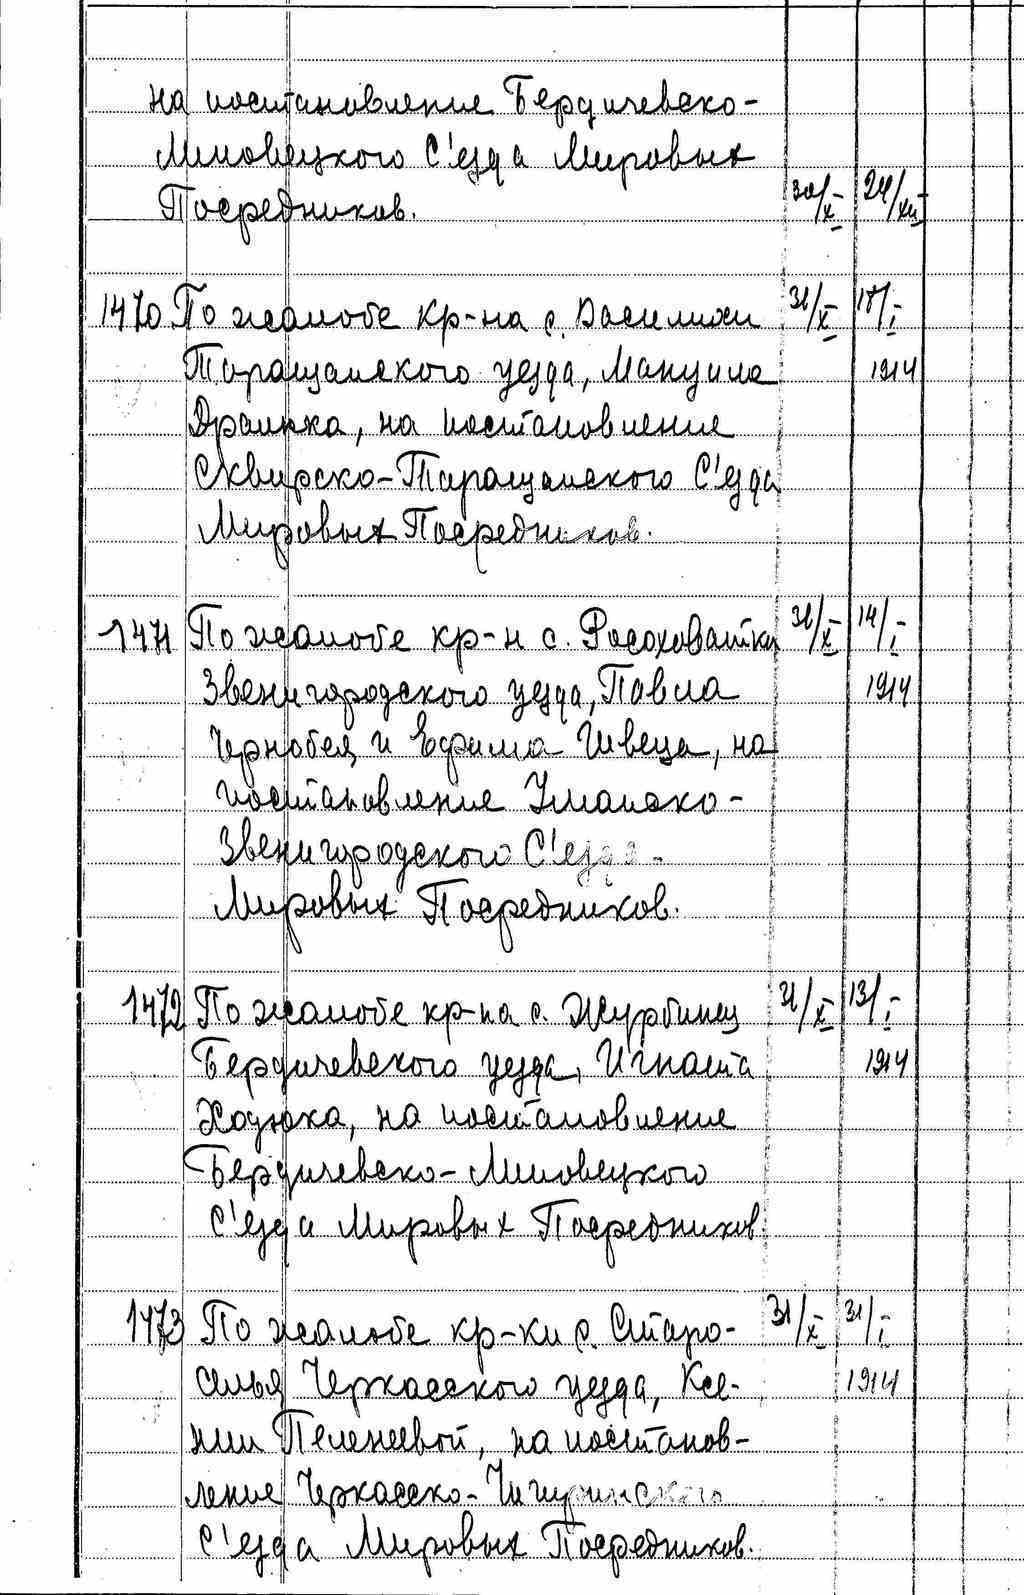 на постановление Бердичевско-
Липовецкого С'езда Мировых
Посредников. 30/X 24/XII
1470 По жалобе кр-на с. Василихи 31/X 18/I
Таращанского уезда, Мануила 1914
на постановление
Сквирско-Таращанского С'езда
Мировых Посредников.
1471 По жалобе кр-н с. Росоховатки 31/X 14/I
Звенигородского уезда, Павла 1914
Чернобея и Ефима Швеца, на
постановление Уманско-
Звенигородского С'езда
Мировых Посредников.
1472 По жалобе кр-на с. Журбинец 31/X 13/I
Бердичевского уезда, Игната 1914
Ходюка, на постановление
Бердичевско-Липовецкого
С'езда Мировых Посредников.
1473 По жалобе кр-ки с. Старо- 31/X 31/I
селья Черкасского уезда, Ксе- 1914
нии Пеленеевой, на постанов-
ление Черкасско-Чигиринского
С'езда Мировых Посредников.